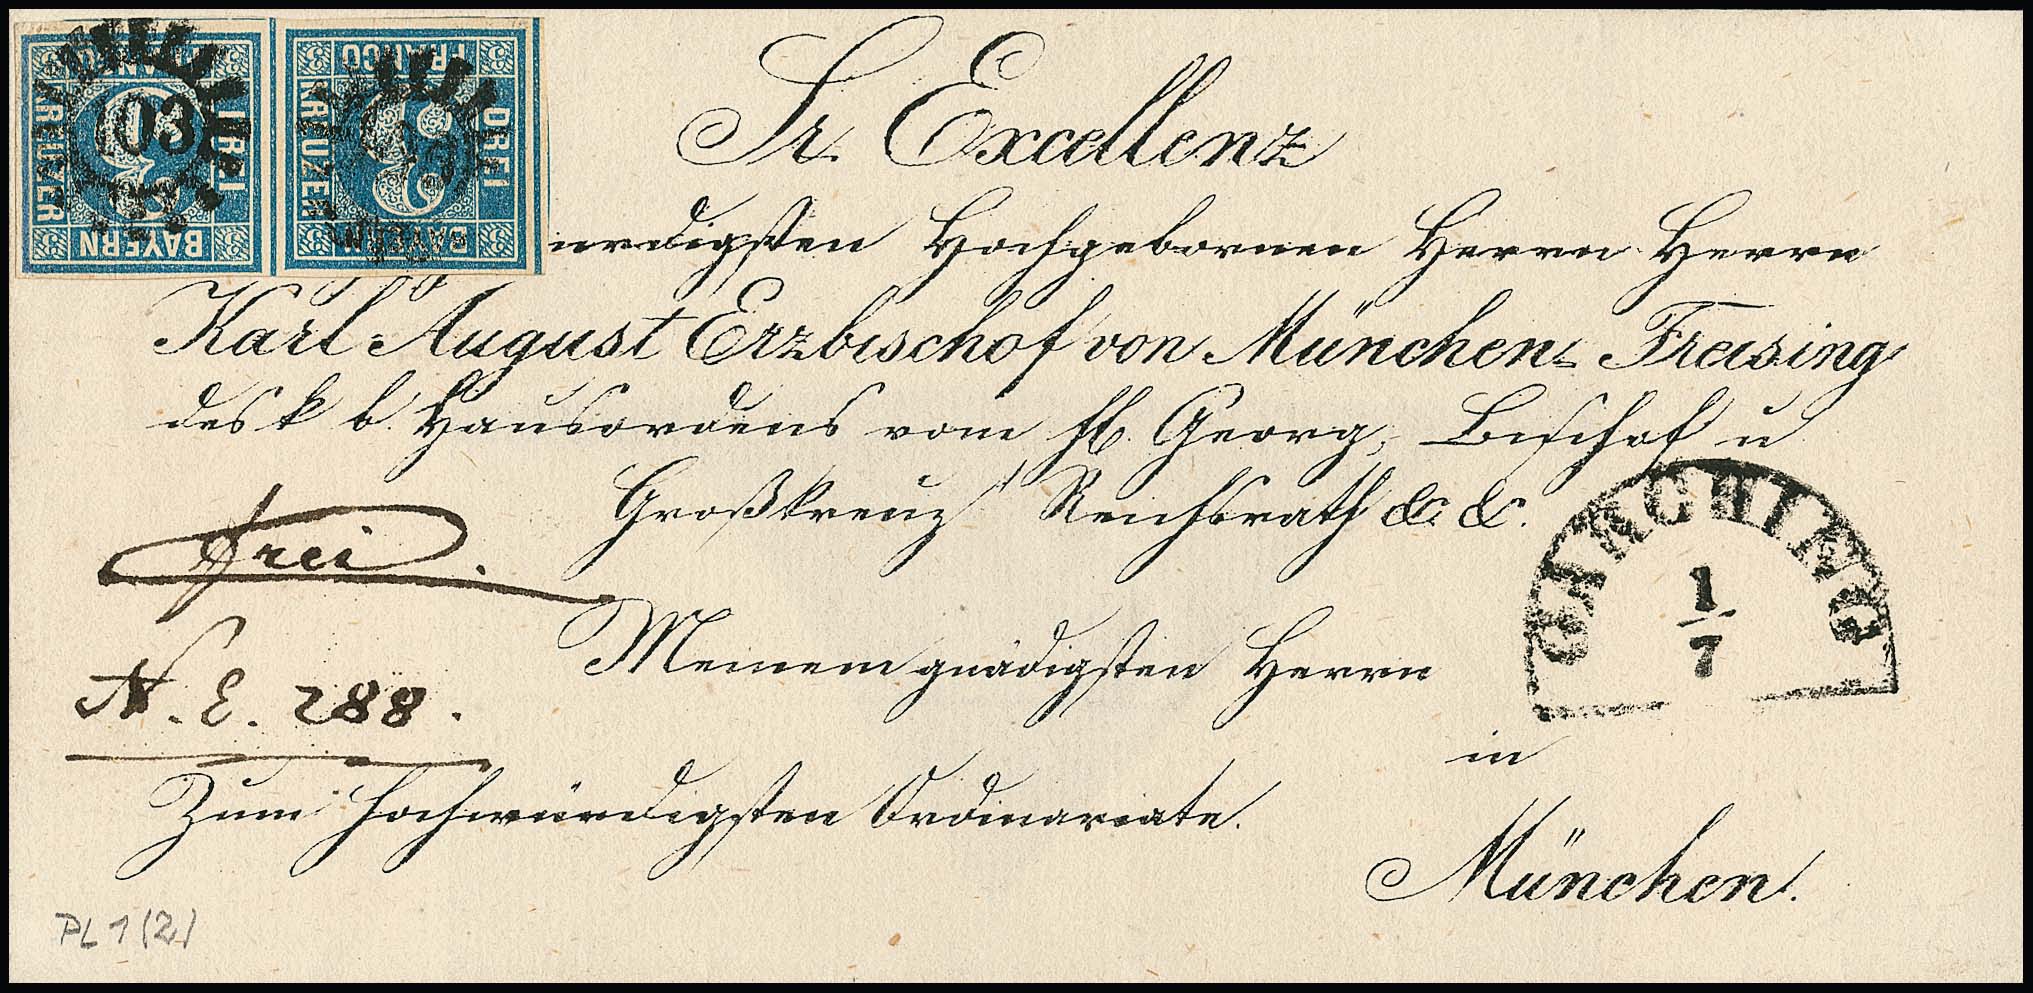 BAYERN
DREI
KREUZER
FRANCO
103
BAYERN
DREI
KREUZER
FRANCO
Sr. Excellenz
urdigsten Hochgebornen Herrn Herrn
Karl August Erzbischof von München-Freising
des k b. Hausordens vom hl. Georg, Bischof u
Großkreuz, Reichsrath &c. &c.
frei.
GARCHING
1/7
Meinem gnädigsten Herrn
N. E. 288.
in
Zum hochwürdigsten Ordinariate.
München.
PL 1 (2)